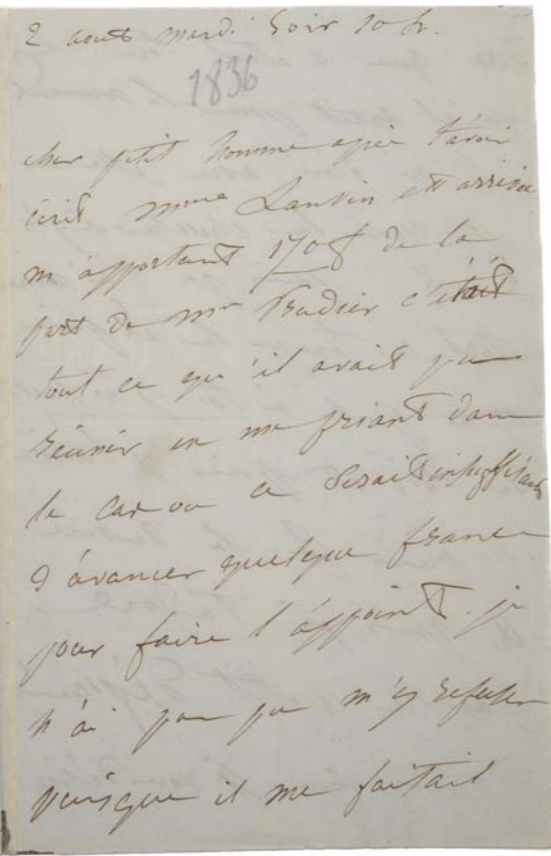 2 aout mardi soir 10 h.
1836
cher petit homme après t'avoir
écrit Mme Lanvin est arrivée
m'apportant 170 f de la
part de Mr Pradier c'était
tout ce qu'il avait pu
réunir en me priant dans
le cas où ce serait insuffisant
d'avancer quelque francs
pour faire l'appoint. je
n'ai pas pu m'y refuser
puisque il me